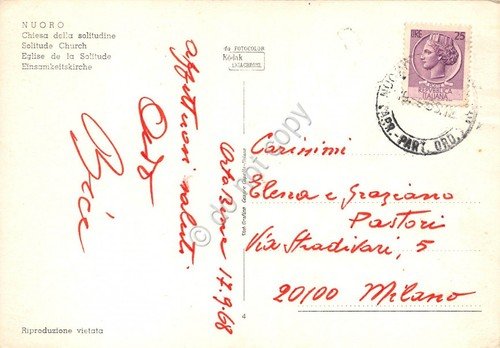 NUORO
Chiesa della solitudine
Solitude Church
Eglise de la Solitude
Einsamkeitskirche
da FOTOCOLOR
Kodak
EKTACHROME
LIRE 25
REPUBBLICA
ITALIANA
NUO
APR.-PART. ORD.
affettuosi saluti
Bice
17.9.68
Carissimi
Elena e Graziano
Pastori
Via Stradivari, 5
20100 Milano
4
Riproduzione vietata
do not copy